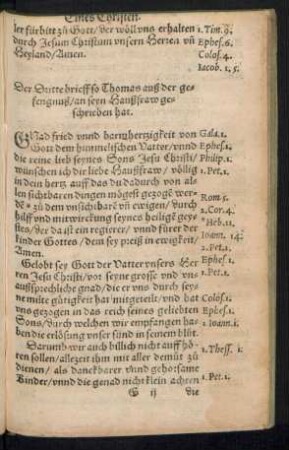 Eines Christen
ler fürbitt zů Gott/der wöll vns erhalten 1. Tim. 9.
durch Jesum Christum vnsern Herren vñ Ephes. 6.
Heyland/Amen. Colos. 4.
Jacob. 1. 5.
Der Dritte brieff so Thomas auß der ge-
fengnuß/an seyn Haußfraw ge-
schrieben hat.
GNad fried vnnd barmhertzigkeit von Gala. 1.
Gott dem himmelischen Vatter/vnnd Ephes. 1.
die reine lieb seynes Sons Jesu Christi/ Philip. 1.
wünschen ich die liebe Haußfraw/völlig 1. Pet. 1.
in dein hertz auff das du dadurch von al-
len sichtbaren dingen mögest gezogē wer-
dē zů den vnsichtbarē vñ ewigen/durch Rom. 5.
hilff vnd mitwirckung seynes heiligē gey- 2. Cor. 4.
stes/der da ist ein regierer/vnnd fürer der Heb. 11.
kinder Gottes/dem sey preiß in ewigkeit/ Joann. 14.
Amen. 2. Pet. 1.
Gelobt sey Gott der Vatter vnsers Her- Ephes. 1.
ren Jesu Christi/vor seyne grosse vnd vn- 1. Pet. 1.
außsprechliche gnad/die er vns durch sey-
ne milte gütigkeit hat mitgeteilt/vnd hat Colos. 1.
vns gezogen in das reich seines geliebten Ephes. 1.
Sons/durch welchen wir empfangen ha- 1. Joann. 1.
ben die erlösung vnser sünd in seinem blůt.
Darumb wir auch billich nicht auff hö-
ren sollen/allezeit ihm mit aller demüt zů 1. Thess. 1.
dienen/als danckbarer vnnd gehorsame
Kinder/vnnd die genad nicht klein achten 1. Pet. 1.
G ij die